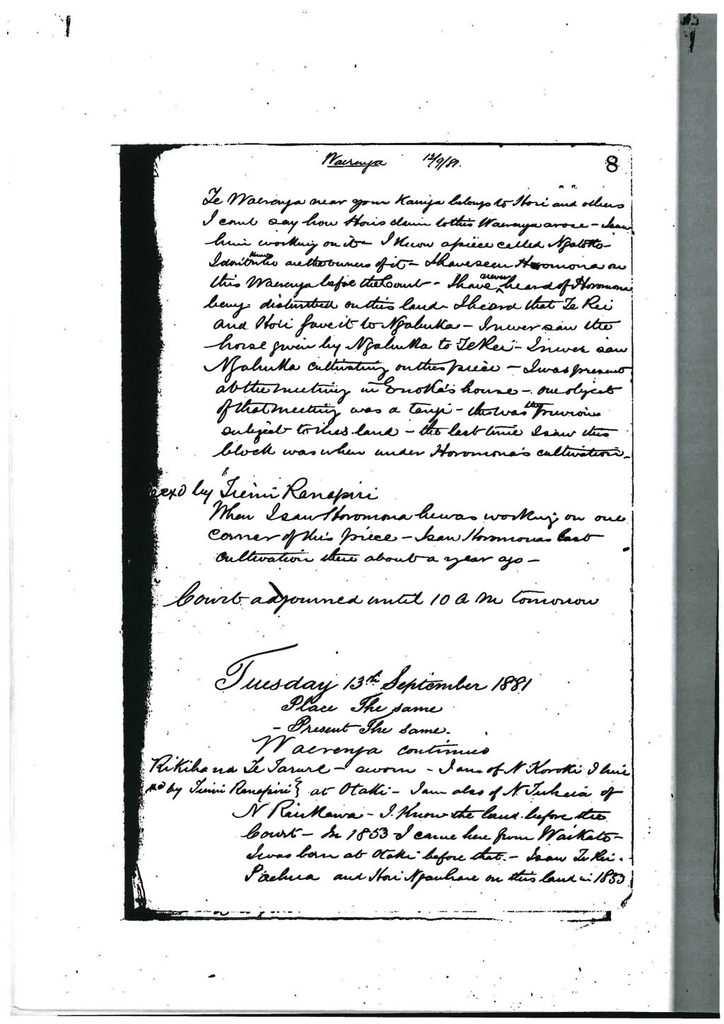 Waerenga 12/9/81. 8
Te Waerenga near your Kainga belongs to Hori and others
I cant say how Horis claim to this Waerenga arose – I saw
him working on it – I know a piece called Ngatoko
I dont know who are the owners of it – I have seen Horomona on
this Waerenga before the Court – I have never heard of Horomona
being disturbed on this land – I heard that Te Rei
and Hori gave it to Ngahuka – I never saw the
horse given by Ngahuka to Te Rei – I never saw
Ngahuka cultivating on this piece – I was present
at the meeting in Enoka's house – one object
of that meeting was a tangi – this was the previous
subject to this land – the last time I saw this
block was when under Horomona's cultivation –
exd by Tiemi Ranapiri
When I saw Horomona he was working on one
corner of this piece – I saw Horomonas last
cultivation there about a year ago –
Court adjourned until 10 A M tomorrow
Tuesday 13th September 1881
Place The same
– Present The same.
Waerenga continued
Rikihana Te Tarure – sworn – I am of N Koroki I live
xd by Tiemi Ranapiri } at Otaki – I am also of N Tukeia of
N Raukawa – I know the land before the
Court – In 1853 I came here from Waikato –
I was born at Otaki before that – I saw Te Rei
Paehua and Hori Ngawhare on this land in 1853